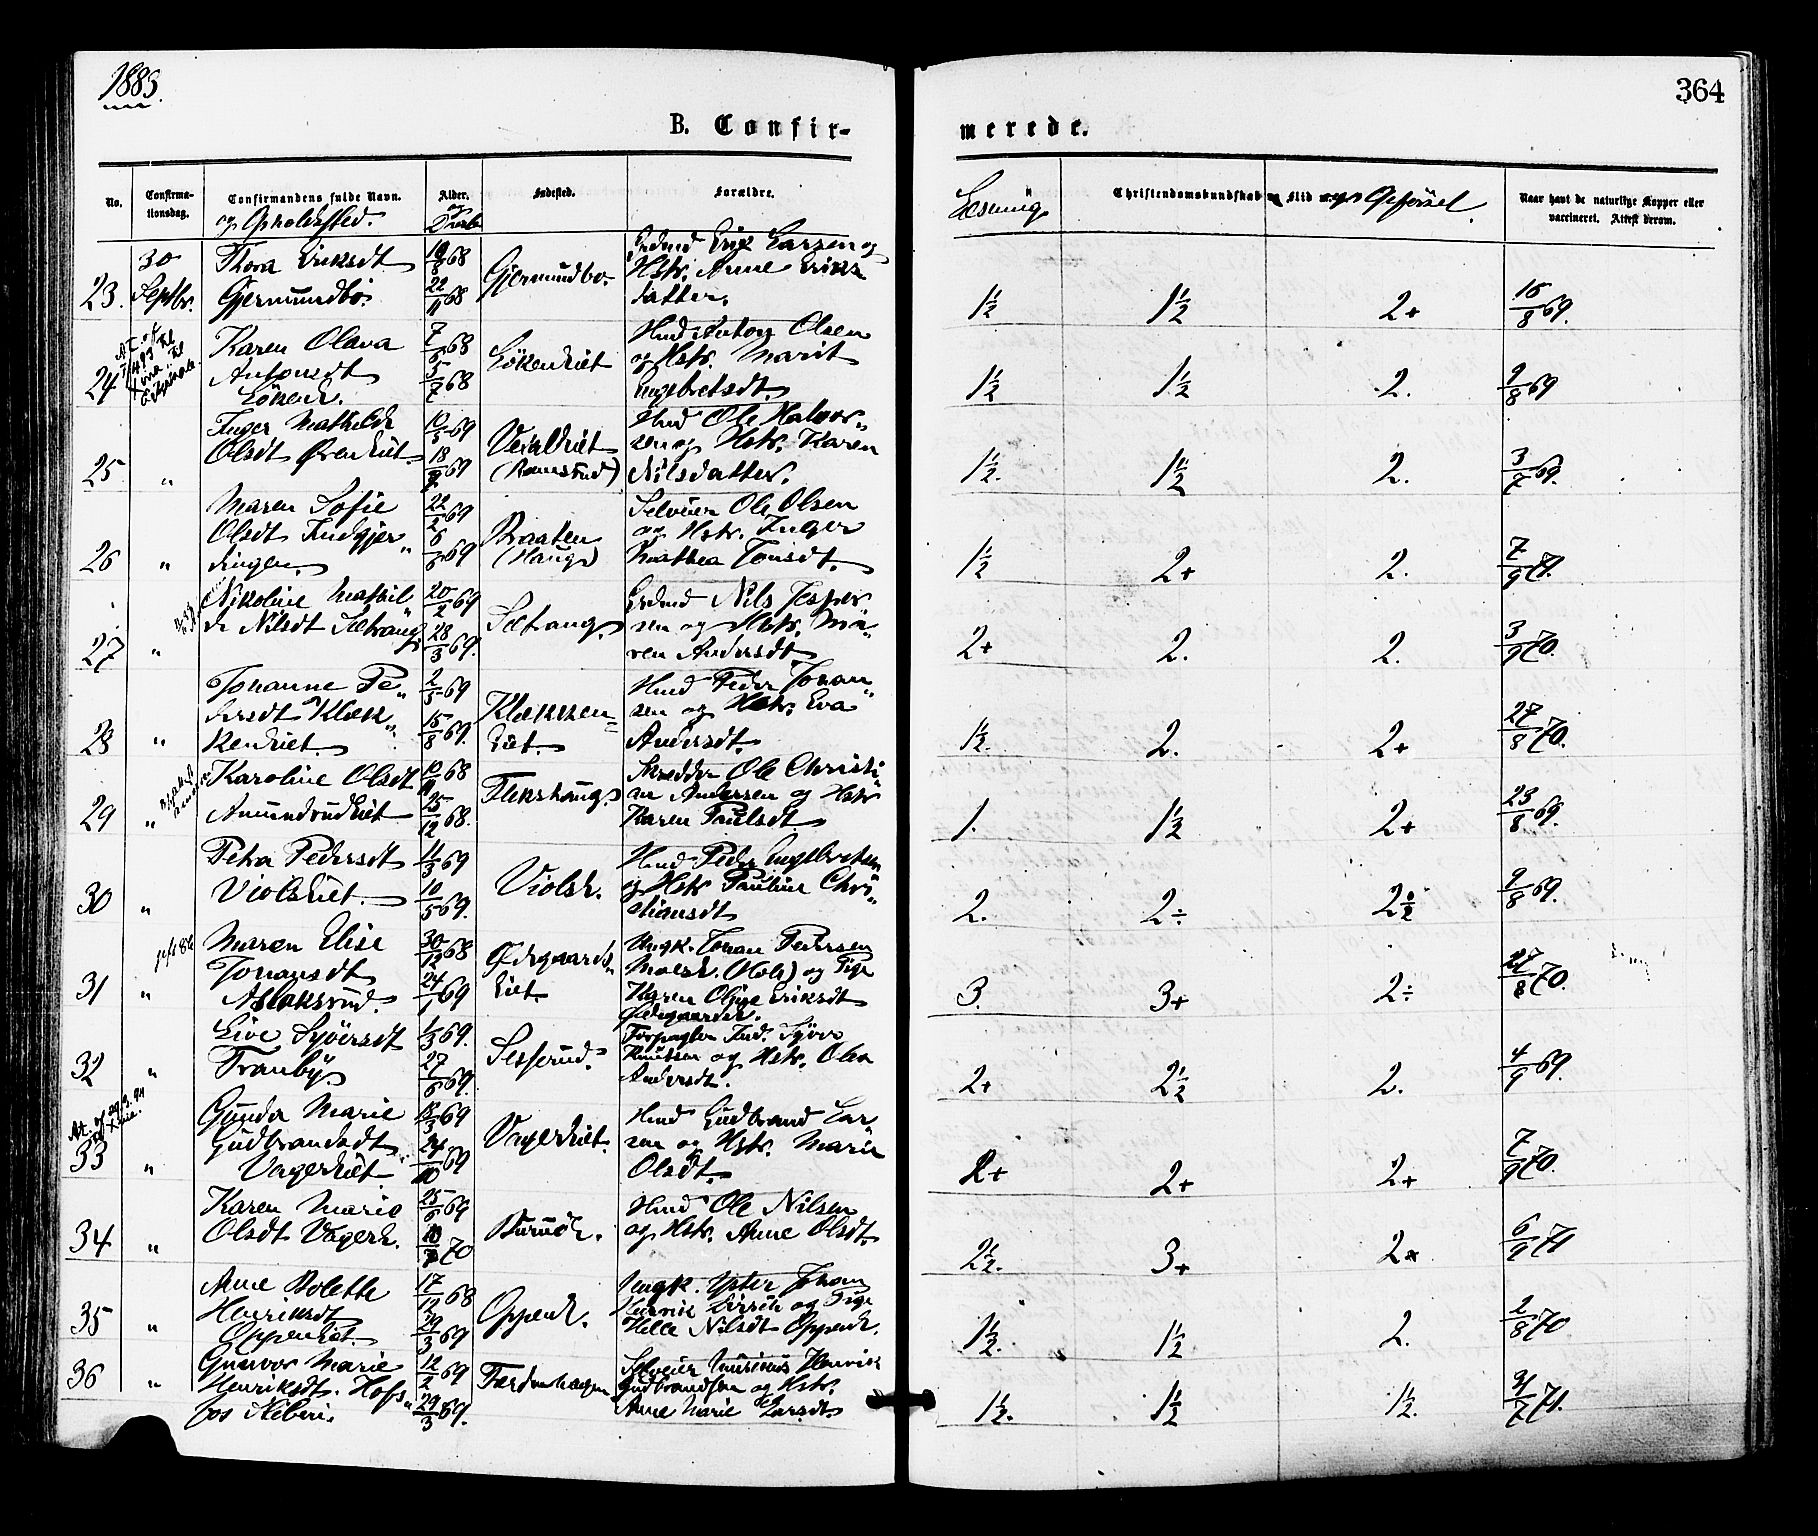 1883.
364
B. Confir-
merede.
No.
Confirma-
tionsdag.
Confirmandens fulde Navn.
og Opholdssted.
Alder.
og
Daab
Fødested.
Forældre.
Læsning
Christendomskundskab
Flid og Opførsel
Naar havt de naturlige Kopper eller
vaccineret. Attest derom.
23. 30 Septbr.
Thora Eriksdt
Gjermundbo.
22/11 68
Gjermundbo.
Grdmd Erik Larsen og
Hstr. Anne Eriks
datter.
1½ 1½ 2+ 16/8 69.
24
Karen Olava
Antonsdt
Løkene.
7/5 68
5/7 68
Løkeneiet
Hmd Anton Olsen
og Hstr. Marit
Engebretsdt.
1½ 1½ 2. 2/8 69
25 "
Inger Mathilde
Olsdt
69
18 69
(Ramsrud)
Hmd Ole Halvor„
sen og Hstr. Karen
Nilsdatter.
1½. 1½ 2. 3/7 69.
26 "
Maren Sofie
Olsdt Indgjer„
dingen.
22/2 69
6/6 69
Braaten
(Haug)
Selveier Ole Olsen
og Hstr. Inger
Mathea Jonsdt.
1½ 2+ 2. 7/9 71.
27 "
Nikoline Mathil„
de Nilsdt Sætrang
20/2 69
28/3 69.
Sætrang.
Grdmd Nils Jesper„
sen og Hstr. Ma„
ren Andersdt.
2+ 2. 2. 3/9 70.
28 "
Johanne Pe„
dersdt Klæk„
keneiet.
2/5 69
15/8 69.
Klækken„
eiet.
Hmd Peder Johan„
sen og Hstr. Eva
Andersdt.
1½. 2. 2+ 27/8 70.
29 "
Karoline Olsdt
Amundrudeiet
12/11 68
25/12 68.
Flekshaug.
Skrædder Ole Christi„
an Andersen og Hstr
Karen Paulsdt.
1. 1½ 2+ 23/8 69.
30 "
Petra Pedersdt
Violseiet.
11/3 69
10/5 69.
Violse.
Hmd Peder Engebretsen
og Hstr Pauline Chri„
stiansdt
2. 2÷ 2½ 2/8 69.
31 "
Maren Elise
Johansdt
Aslaksrud.
30/12 68
24/1 69
Ødegaards„
eiet.
Ungk. Johan Pedersen
Moese. (Hole) og Pige
Karen Oline Eriksdt
Ødegaarden.
3. 3+ 2÷ 27/8 70.
32 "
Live Syversdt
Tranby.
1/3 69.
27/6 69.
Sesserud.
Forpagter Syver
Knutsen og Hstr. Olea
Andersdt.
2+ 2½ 2. 4/9 69.
33 "
Gunda Marie
Gudbrandsdt
Vagereiet
18/3 69
24/10 69
Vagereiet.
Hmd Gudbrand Lar„
sen og Hstr. Marie
Olsdt.
2+ 2+ 2+ 7/9 70.
34 "
Karen Marie
Olsdt Vagere.
25/6 69
70
Burude.
Hmd Ole Nilsen
og Hstr. Anne Olsdt.
2½. 3+ 2+ 6/9 71
35 "
Anne Bolette
Henriksdt
Oppeneiet.
17/12 68
29/3 69
Oppene.
Ungk. Johan
Henrik og Pige
Helle Nilsdt Oppene.
1½. 1½ 2. 2/8 70
36 "
Gunvor Marie
Henriksdt. Hofs„
fos Sliberi.
12/2 69
29/3 69.
Færdenhagen
Selveier Henrik
Gudbrandsen og Hstr.
Anne Marie Larsdt.
1½. 1½ 1½. 71.